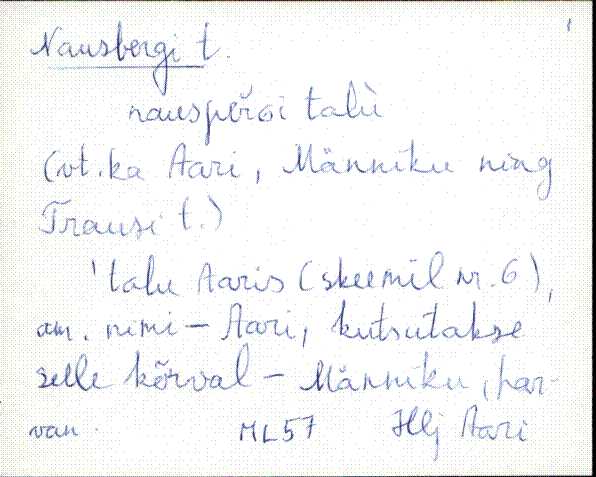 Nausbergi t.
nausperGi talù
(vt. ka Aari, Männiku ning
Trausi t.)
'talu Aaris (skeemil nr. 6),
am. nimi – Aari, kutsutakse
selle kõrval – Männiku, har-
van.
ML57 Hlj Aari